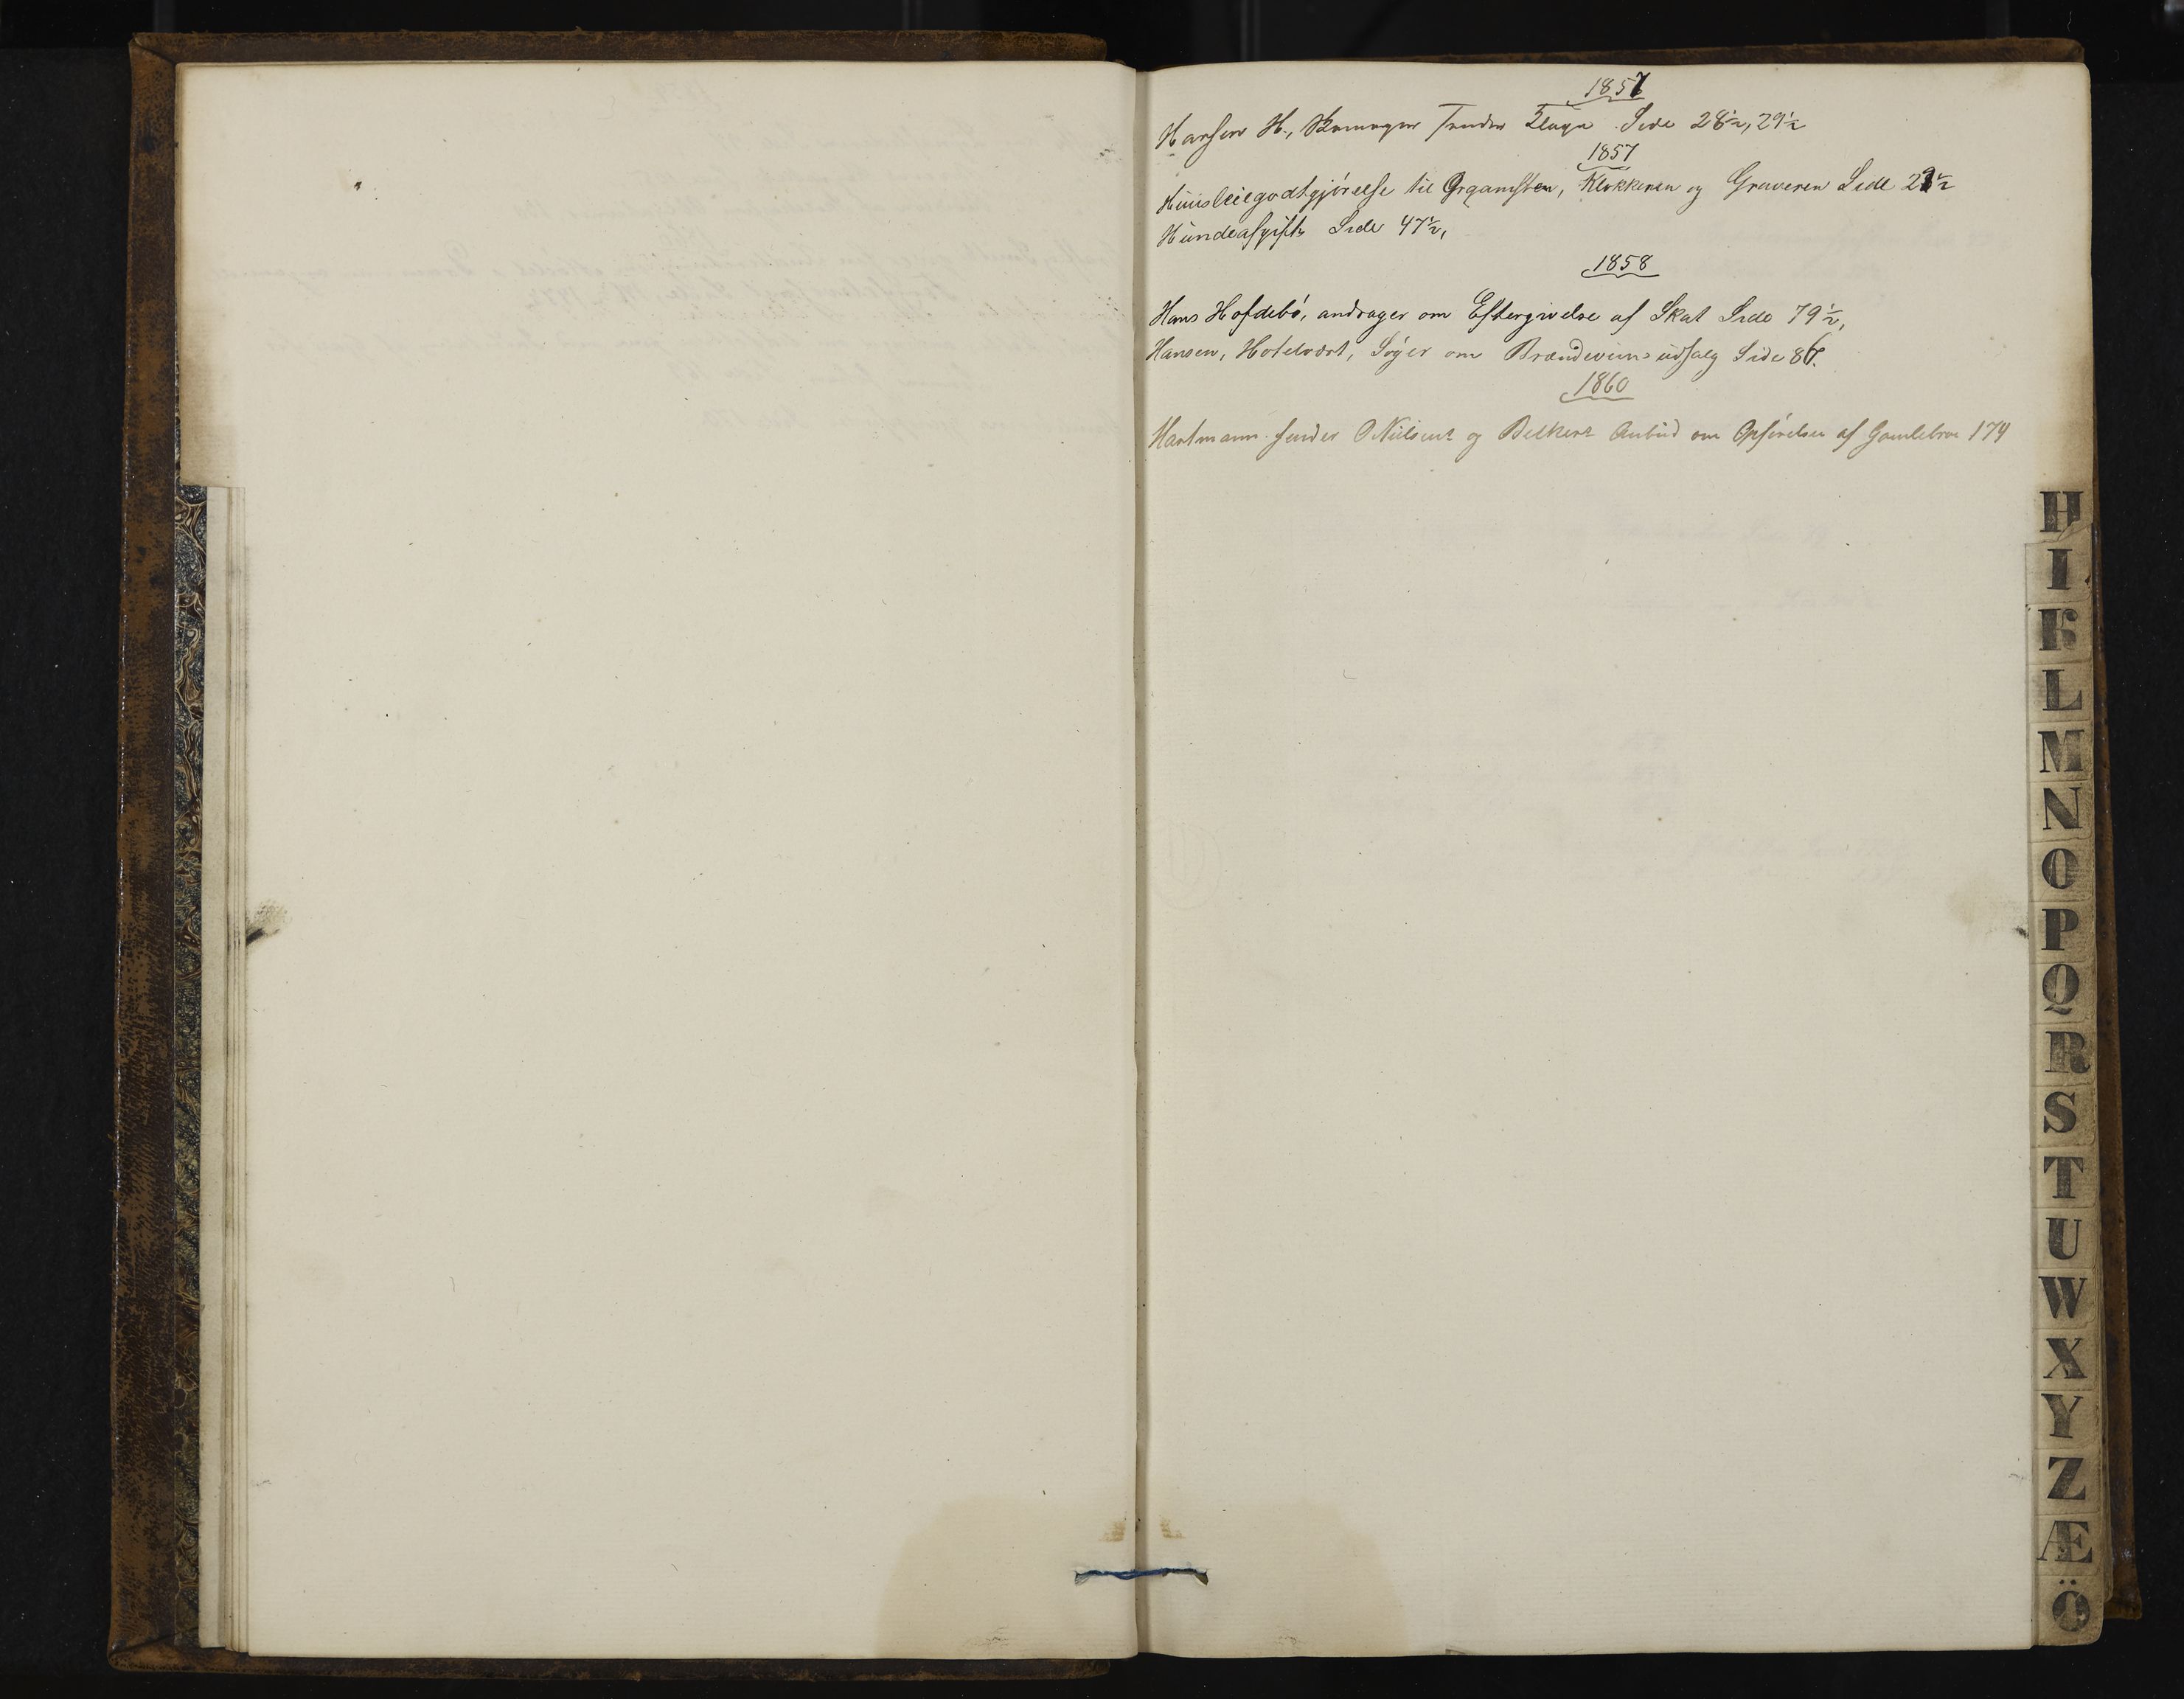 1857
Hansen H., Skomager Svendes Klage Side 28½, 29½
1857
Huusleiegodtgjörelse til Organisten, Klokkeren og Graveren Side 29½
Hundeafgift Side 47½,
1858
Hans Hofdebö, andrager om Eftergivelse af Skat Side 79½,
Hansen, Hotelvært, Söger om Brændeviinsudsalg Side 86.
1860
Hartmann sender O Nielsens og Belkers Anbud om Opförelse af Gamlebroe 174
H
I
K
L
M
N
O
P
Q
R
S
T
U
W
X
Y
Z
Æ
Ö